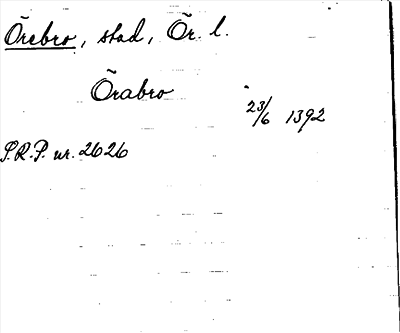 Örebro, stad, Ör. l.
Örabro
23/6 1392
S.R.P. nr. 2626